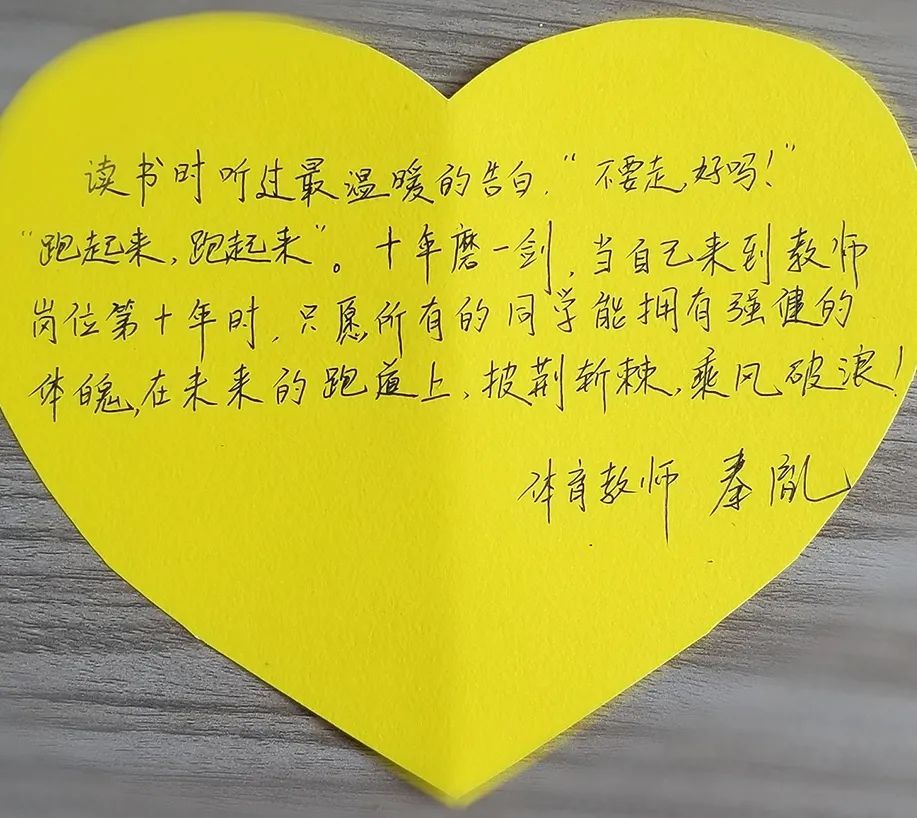 读书时听过最温暖的告白,“不要走,好吗!”
“跑起来,跑起来”。十年磨一剑,当自己来到教师
岗位第十年时,只愿所有的同学能拥有强健的
体魄,在未来的跑道上,披荆斩棘,乘风破浪!
体育教师 秦胤